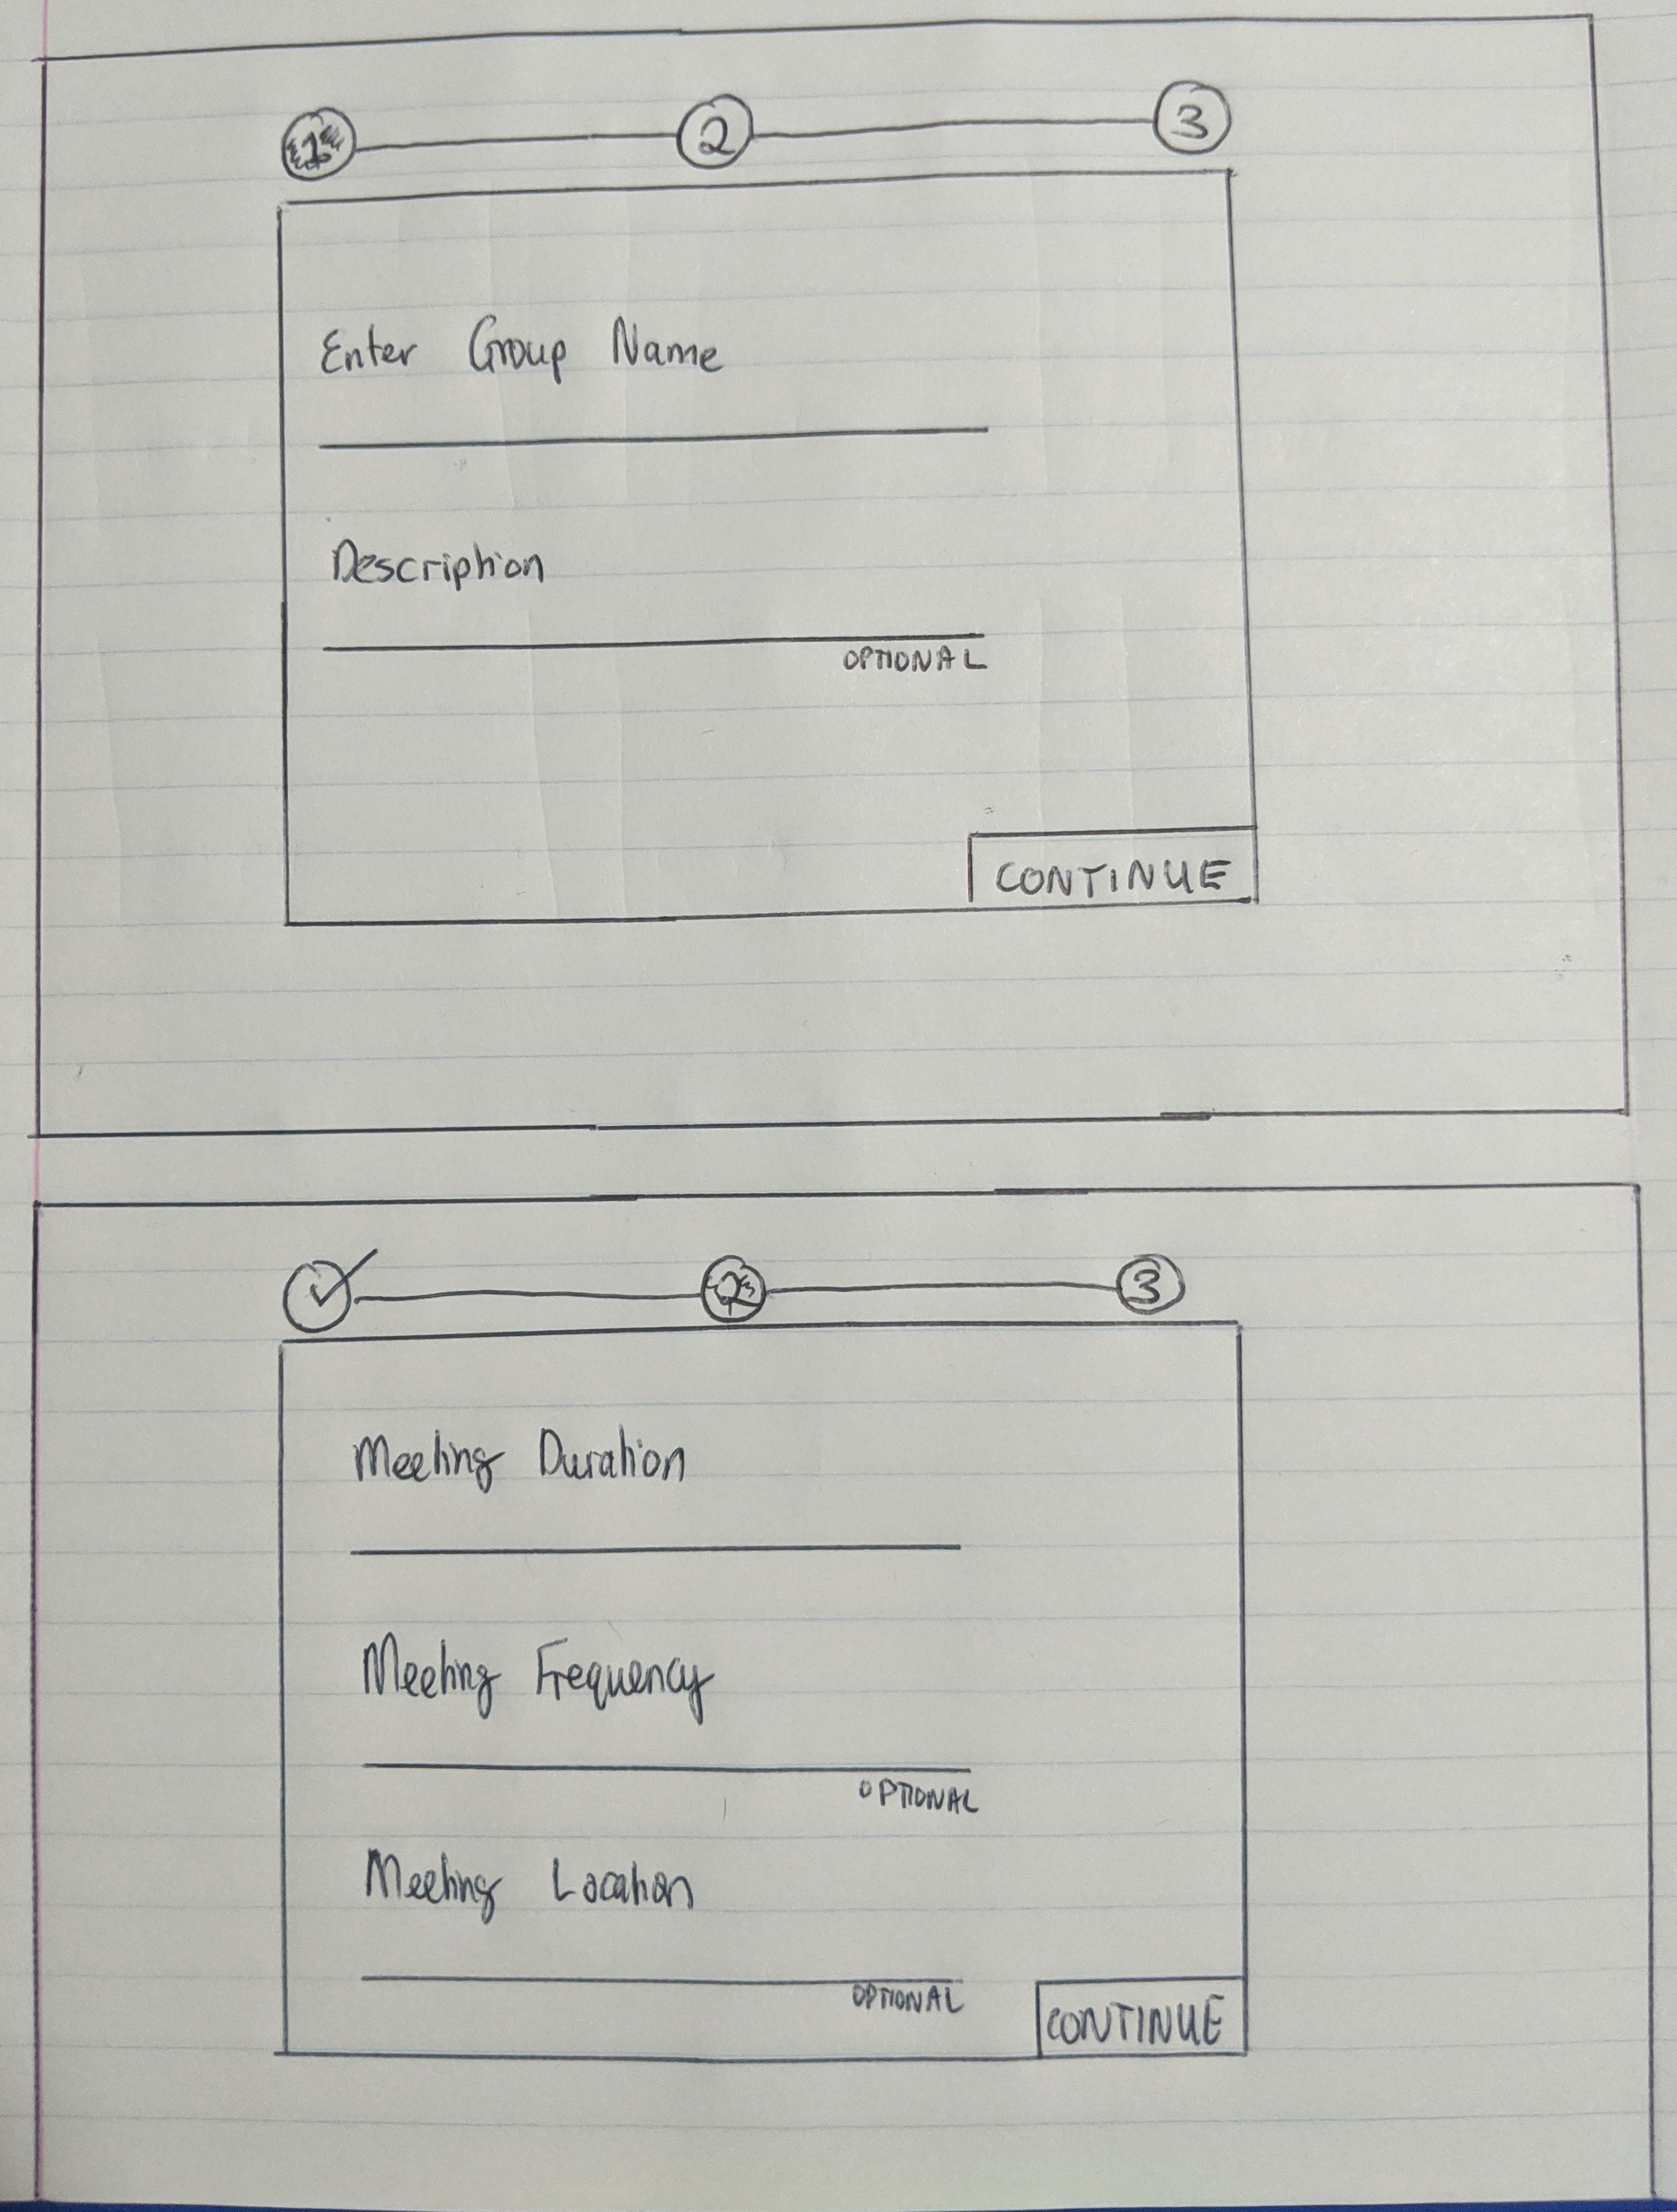 1 2 3
Enter Group Name
Description
OPTIONAL
CONTINUE
2 3
Meeting Duration
Meeting Frequency
OPTIONAL
Meeting Location
OPTIONAL
CONTINUE